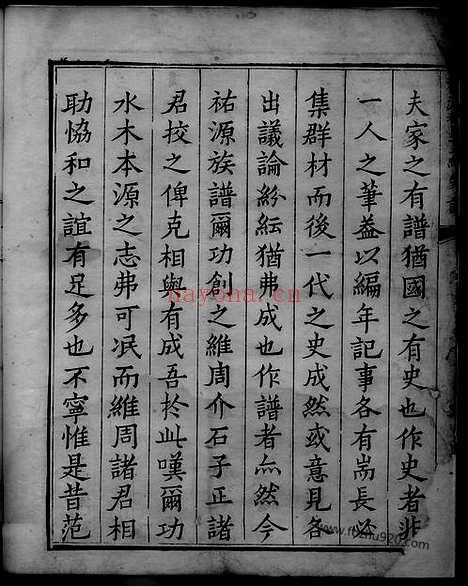 夫家之有譜猶國之有史也作史者非
一人之筆葢以編年記事各有耑長必
集群材而後一代之史成然或意見各
出議論紛紜猶弗成也作譜者亦然今
祐源族譜爾功創之維周介石子正諸
君校之俾克相與有成吾於此嘆爾功
水木本源之志弗可泯而維周諸君相
助恊和之誼有足多也不寧惟是昔范
nayona.cn